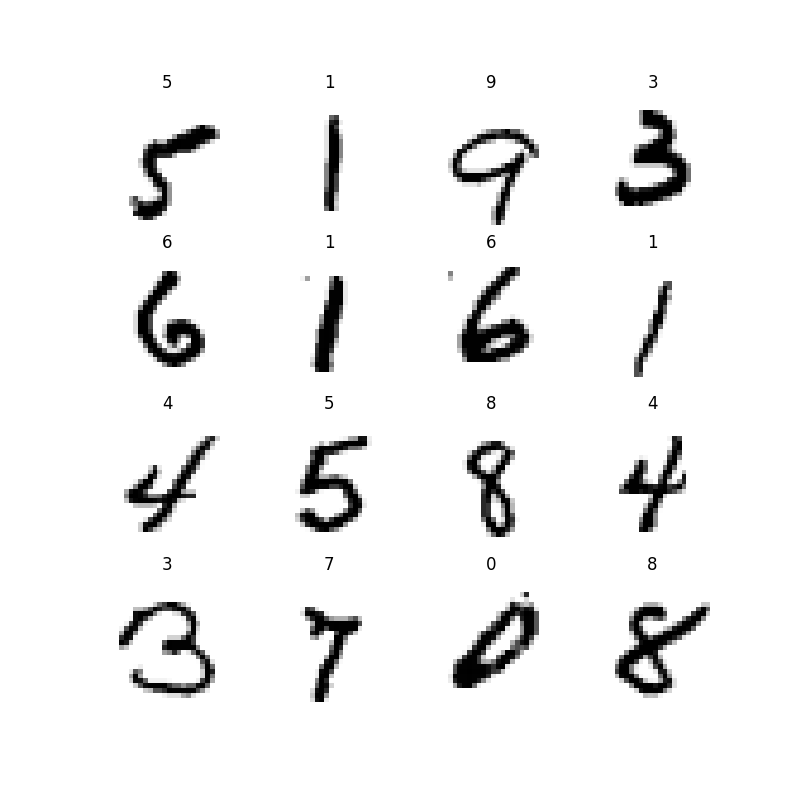 5 1 9 3
5 1 9 3
6 1 6 1
6 1 6 1
4 5 8 4
4 5 8 4
3 7 0 8
3 7 0 8